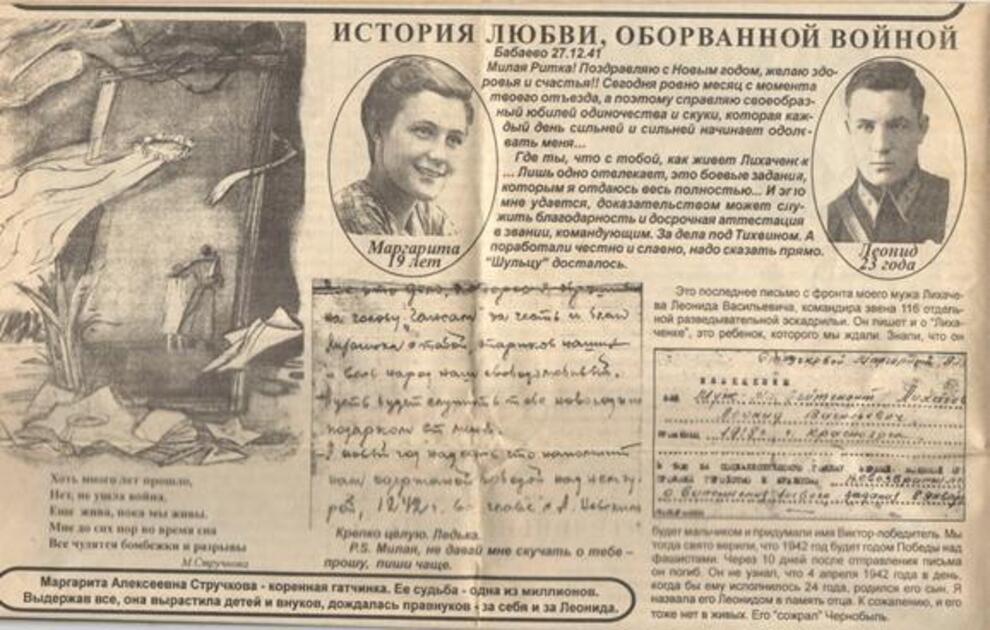 ИСТОРИЯ ЛЮБВИ, ОБОРВАННОЙ ВОЙНОЙ
Бабаево 27.12.41
Милая Ритка! Поздравляю с Новым годом, желаю здо-
ровья и счастья!! Сегодня ровно месяц с момента
твоего отъезда, а поэтому справляю своеобраз-
ный юбилей одиночества и скуки, которая каж-
дый день сильней и сильней начинает одоле-
вать меня...
Где ты, что с тобой, как живет Лихаченск
... Лишь одно отвлекает, это боевые задания,
которым я отдаюсь весь полностью... И это
мне удается, доказательством может слу-
жить благодарность и досрочная аттестация
в звании, командующим. За дела под Тихвином. А
поработали честно и славно, надо сказать прямо.
"Шульцу" досталось.
Маргарита
19 лет
Леонид
23 года
на голову
и весь народ наш свободолюбивый.
Пусть будет служить тебе новогодним
подарком от меня.
Крепко целую. Ледька.
P.S. Милая, не давай мне скучать о тебе –
прошу, пиши чаще.
Это последнее письмо с фронта моего мужа Лихаче-
ва Леонида Васильевича, командира звена 116 отдель-
ной разведывательной эскадрильи. Он пишет и о "Лиха-
ченке", это ребенок, которого мы ждали. Знали, что он
ИЗВЕЩЕНИЕ
Леонид Васильевич
будет мальчиком и придумали имя Виктор-победитель. Мы
тогда свято верили, что 1942 год будет годом Победы над
фашистами. Через 10 дней после отправления письма
он погиб. Он не узнал, что 4 апреля 1942 года в день,
когда бы ему исполнилось 24 года, родился его сын. Я
назвала его Леонидом в память отца. К сожалению, и его
тоже нет в живых. Его "сожрал" Чернобыль.
Хоть много лет прошло,
Нет, не ушла война.
Еще жива, пока мы живы.
Мне до сих пор во время сна
Все чудятся бомбежки и разрывы
М.Стручкова
Маргарита Алексеевна Стручкова - коренная гатчинка. Ее судьба - одна из миллионов.
Выдержав все, она вырастила детей и внуков, дождалась правнуков - за себя и за Леонида.